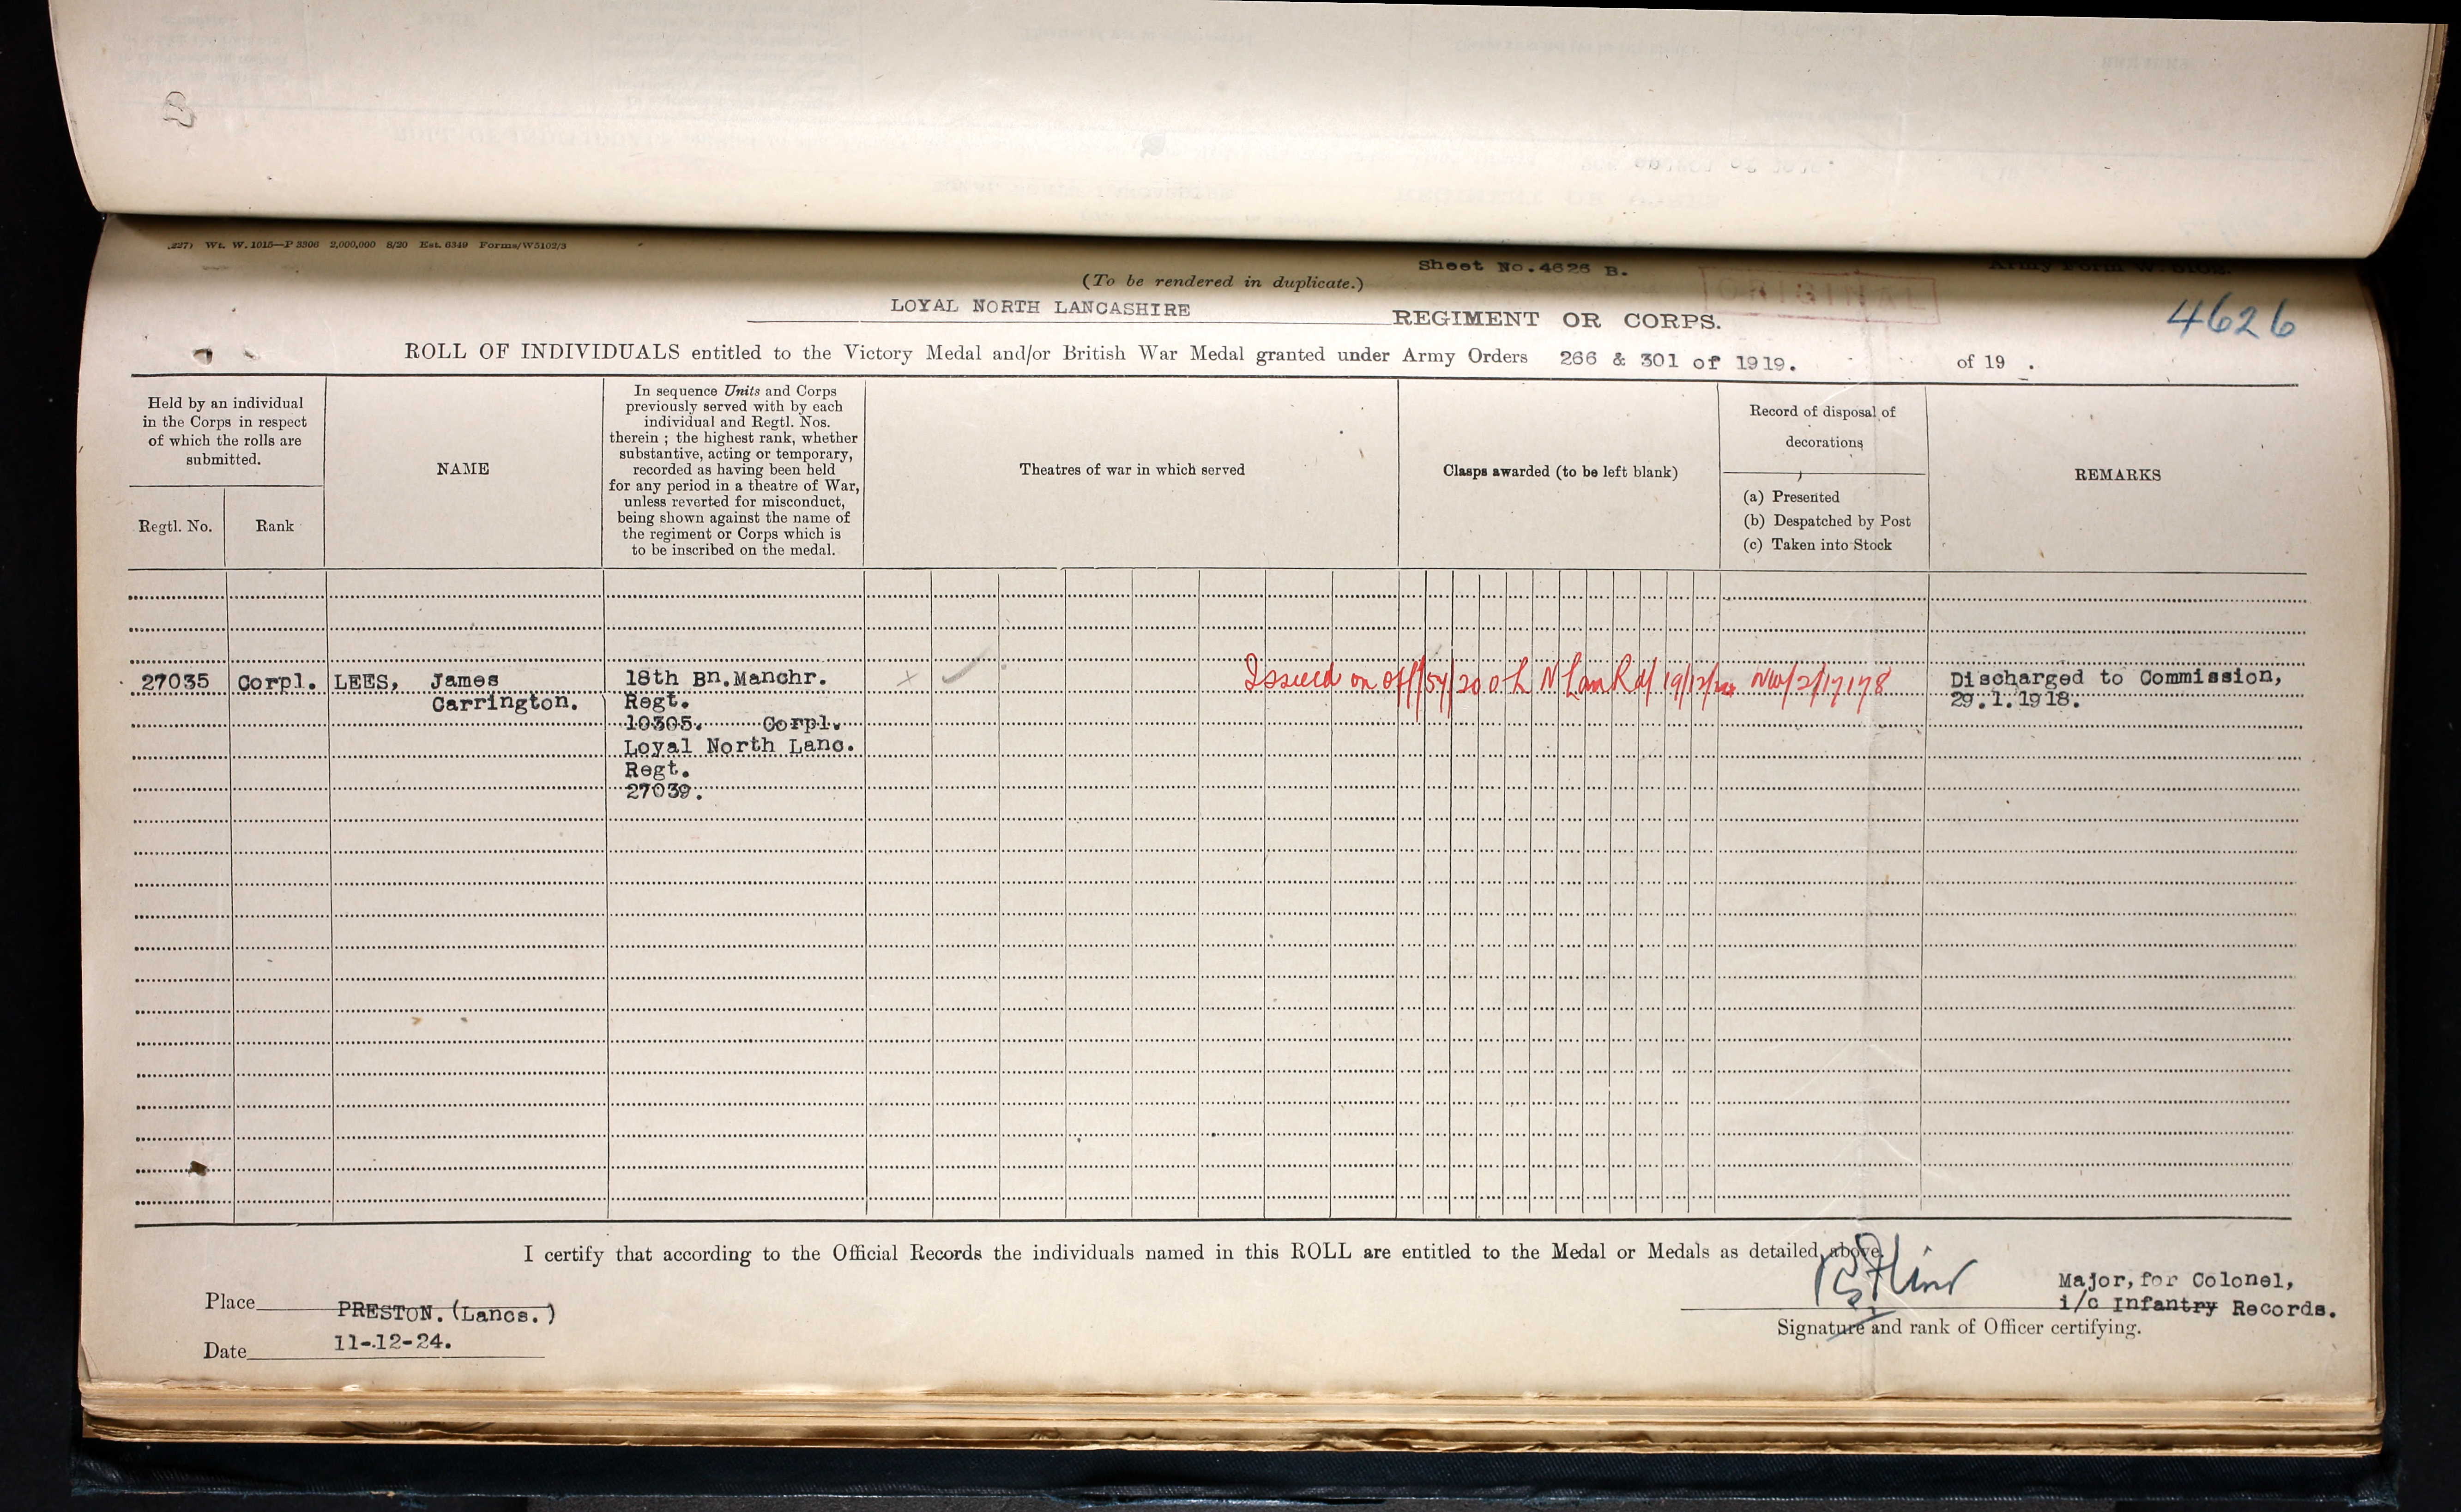 Wt. W. 1015—P 3306 2,000,000 8/20 Est. 6349 Forms/W5102/3
Sheet No.4626 B.
(To be rendered in duplicate.)
ORIGINAL
4626
LOYAL NORTH LANCASHIRE REGIMENT OR CORPS.
ROLL OF INDIVIDUALS entitled to the Victory Medal and/or British War Medal granted under Army Orders 266 & 301 of 1919. of 19 .
Held by an individual
in the Corps in respect
of which the rolls are
submitted.
Regtl. No.
Rank
NAME
In sequence Units and Corps
previously served with by each
individual and Regtl. Nos.
therein ; the highest rank, whether
substantive, acting or temporary,
recorded as having been held
for any period in a theatre of War,
unless reverted for misconduct,
being shown against the name of
the regiment or Corps which is
to be inscribed on the medal.
Theatres of war in which served
Clasps awarded (to be left blank)
Record of disposal of
decorations
(a) Presented
(b) Despatched by Post
(c) Taken into Stock
REMARKS
27035 Corpl. LEES, James
Carrington.
18th Bn.Manchr.
Regt.
10305. Corpl.
Loyal North Lanc.
Regt.
27039.
Issued on off/54/20 o L N Lan R d/ 19/12/24 NW/2/17178
Discharged to Commission,
29.1.1918.
I certify that according to the Official Records the individuals named in this ROLL are entitled to the Medal or Medals as detailed above.
Place PRESTON. (Lancs.)
Date 11-12-24.
Major, for Colonel,
i/c Infantry Records.
Signature and rank of Officer certifying.